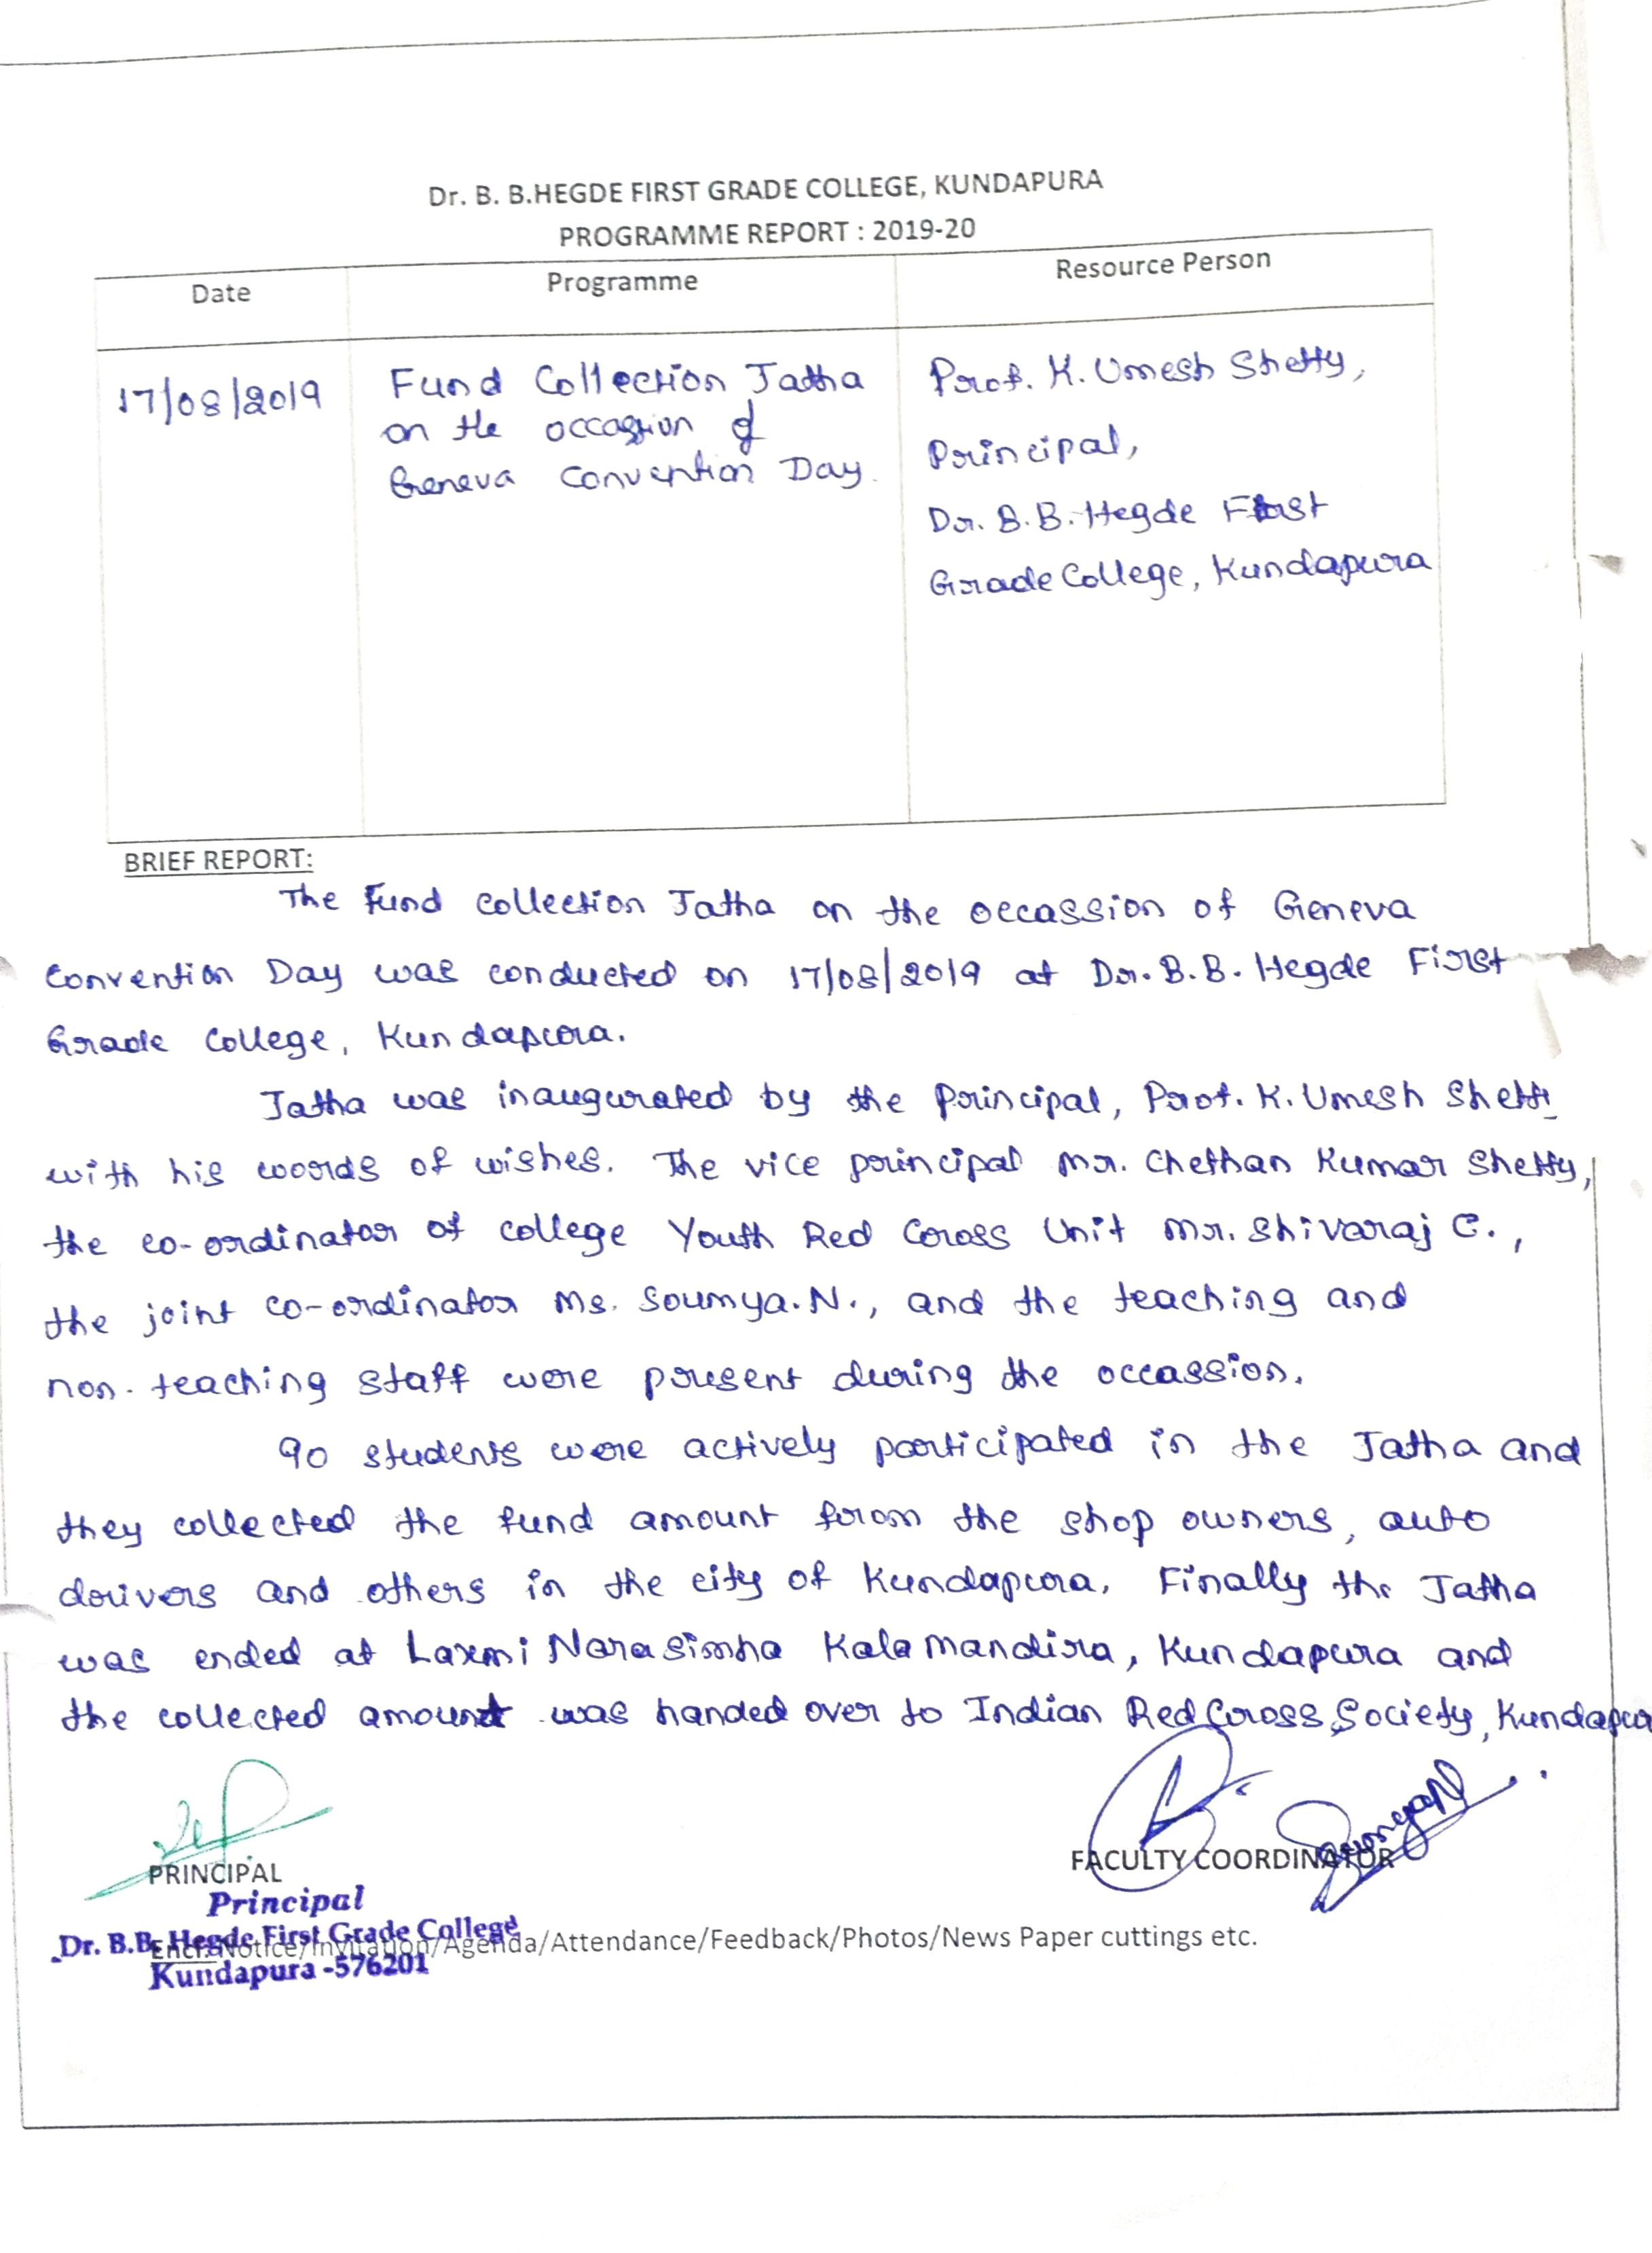 Dr. B. B.HEGDE FIRST GRADE COLLEGE, KUNDAPURA
PROGRAMME REPORT : 2019-20
Date
Programme
Resource Person
17/08/2019
Fund Collection Jatha
on the occassion of
Geneva Convention Day.
Prof. K. Umesh Shetty,
Principal,
Dr. B.B. Hegde First
Grade College, Kundapura
BRIEF REPORT:
The Fund collection Jatha on the occassion of Geneva
Convention Day was conducted on 17/08/2019 at Dr. B.B. Hegde First
Grade College, Kundapura.
Jatha was inaugurated by the Principal, Prof. K. Umesh Shetty
with his words of wishes. The vice principal Mr. Chethan Kumar Shetty,
the co-ordinator of college Youth Red Cross Unit Mr. Shivaraj C.,
the joint co-ordinator Ms. Soumya.N., and the teaching and
non-teaching staff were present during the occassion.
90 students were actively participated in the Jatha and
they collected the fund amount from the shop owners, auto
drivers and others in the city of Kundapura. Finally the Jatha
was ended at Laxmi Narasimha Kala Mandira, Kundapura and
the collected amount was handed over to Indian Red Cross Society, Kundapura
PRINCIPAL
FACULTY COORDINATOR
Principal
Dr. B.B. Hegde First Grade College
Encl: Notice/Invitation/Agenda/Attendance/Feedback/Photos/News Paper cuttings etc.
Kundapura -576201